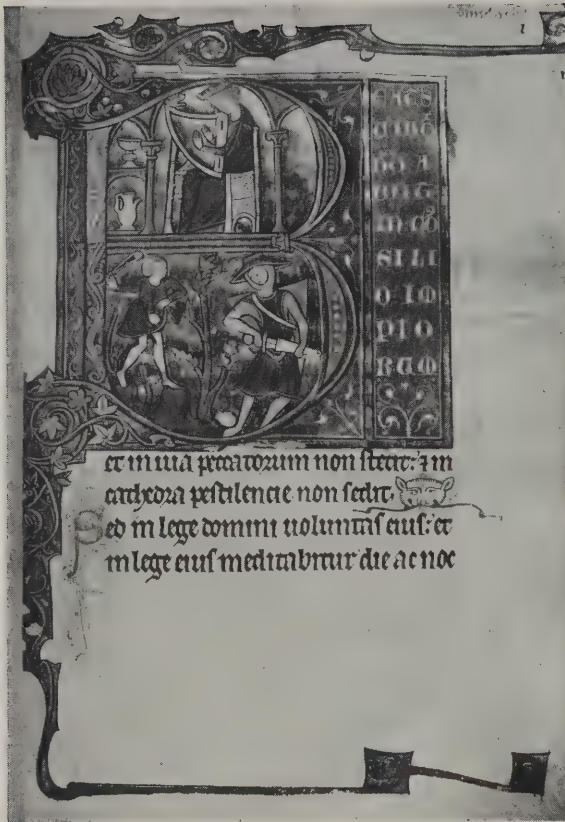 B
SILI
O IM
PIO
RUM
et in uia peccatorum non stetit: ⁊ in
cathedra pestilencie non sedit.
Sed in lege domini uoluntas eius: et
in lege eius meditabitur die ac noc